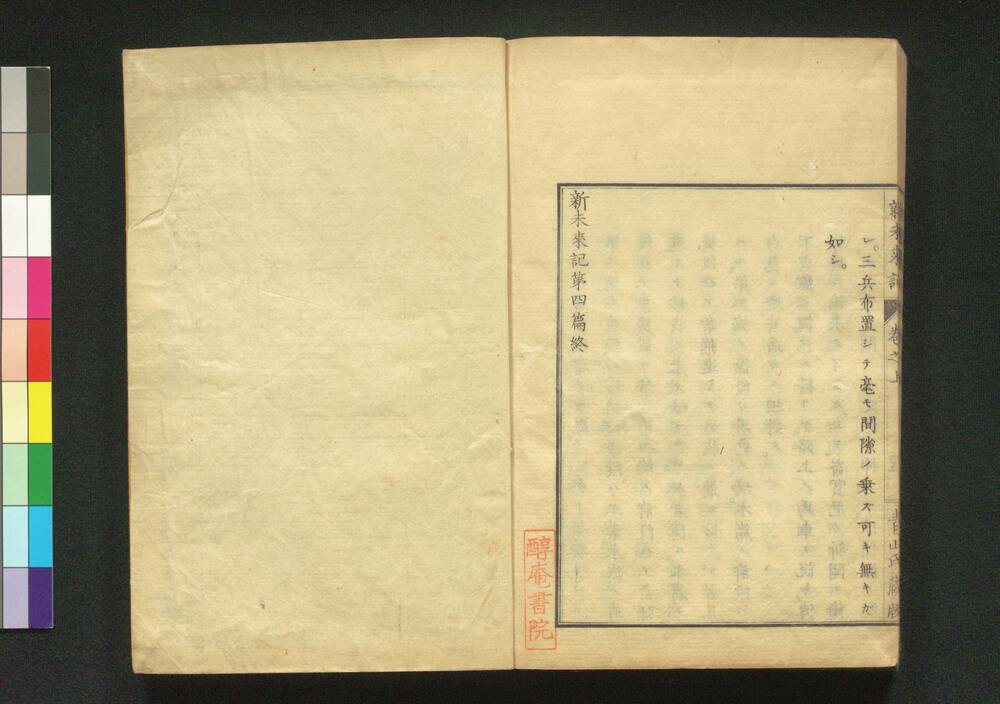 新未來記 卷之上
青山氏藏版
レ。三兵布置シテ毫モ間隙ノ乗ズ可キ無キガ
如シ。
新未來記第四篇終
醇庵書院